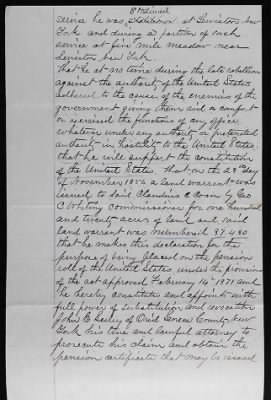 service he was, at Lewiston New
York and during a portion of such
service at five mile meadow near
Lewiston New York.
That he at no time during the late rebellion
against the authority of the United States
adhered to the cause of the enemies of the
government giving them aid or comfort
or exercised the functions of any office
whatever under any authority or pretended
authority in hostility to the United States
that he will support the constitution
of the United States. that on the day
of November 1856 a land warrant was
issued to said C by Geo
C Whiting commissioner for one hundred
and twenty acres of land and said
land warrant was numbered 37490
that he makes this declaration for the
purpose of being placed on the pension
roll of the United States under the provisions
of the act approved February 14th 1871 and
he hereby constitute and appoint with
full power of substitution and revocation
John E Seeley of Ovid Seneca County New
York his true and lawful attorney to
prosecute his claim and obtain the
pension certificate that may be issued